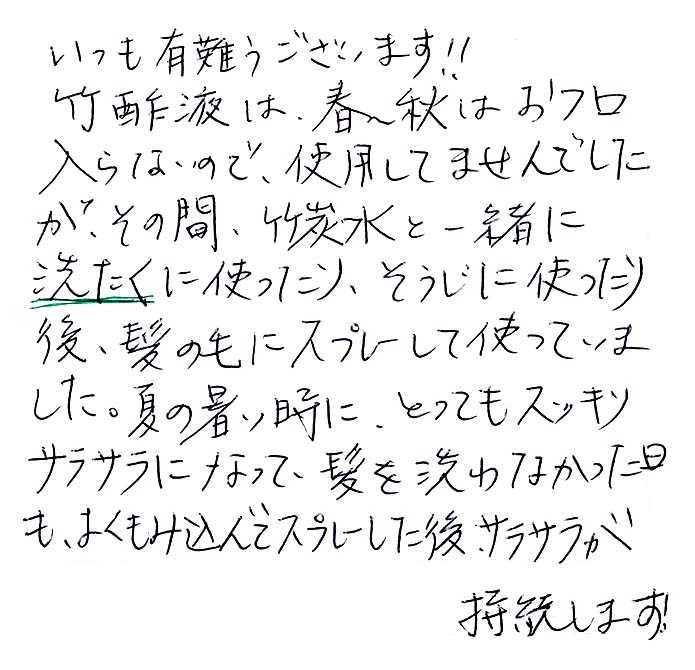 いつも有難うございます!!
竹酢液は、春〜秋はおフロ
入らないので、使用してませんでした
が、その間、竹炭水と一緒に
洗たくに使ったり、そうじに使ったり
後、髪の毛にスプレーして使っていま
した。夏の暑い時に、とってもスッキリ
サラサラになって、髪を洗わなかった日
も、よくもみ込んでスプレーした後、サラサラが
持続します!